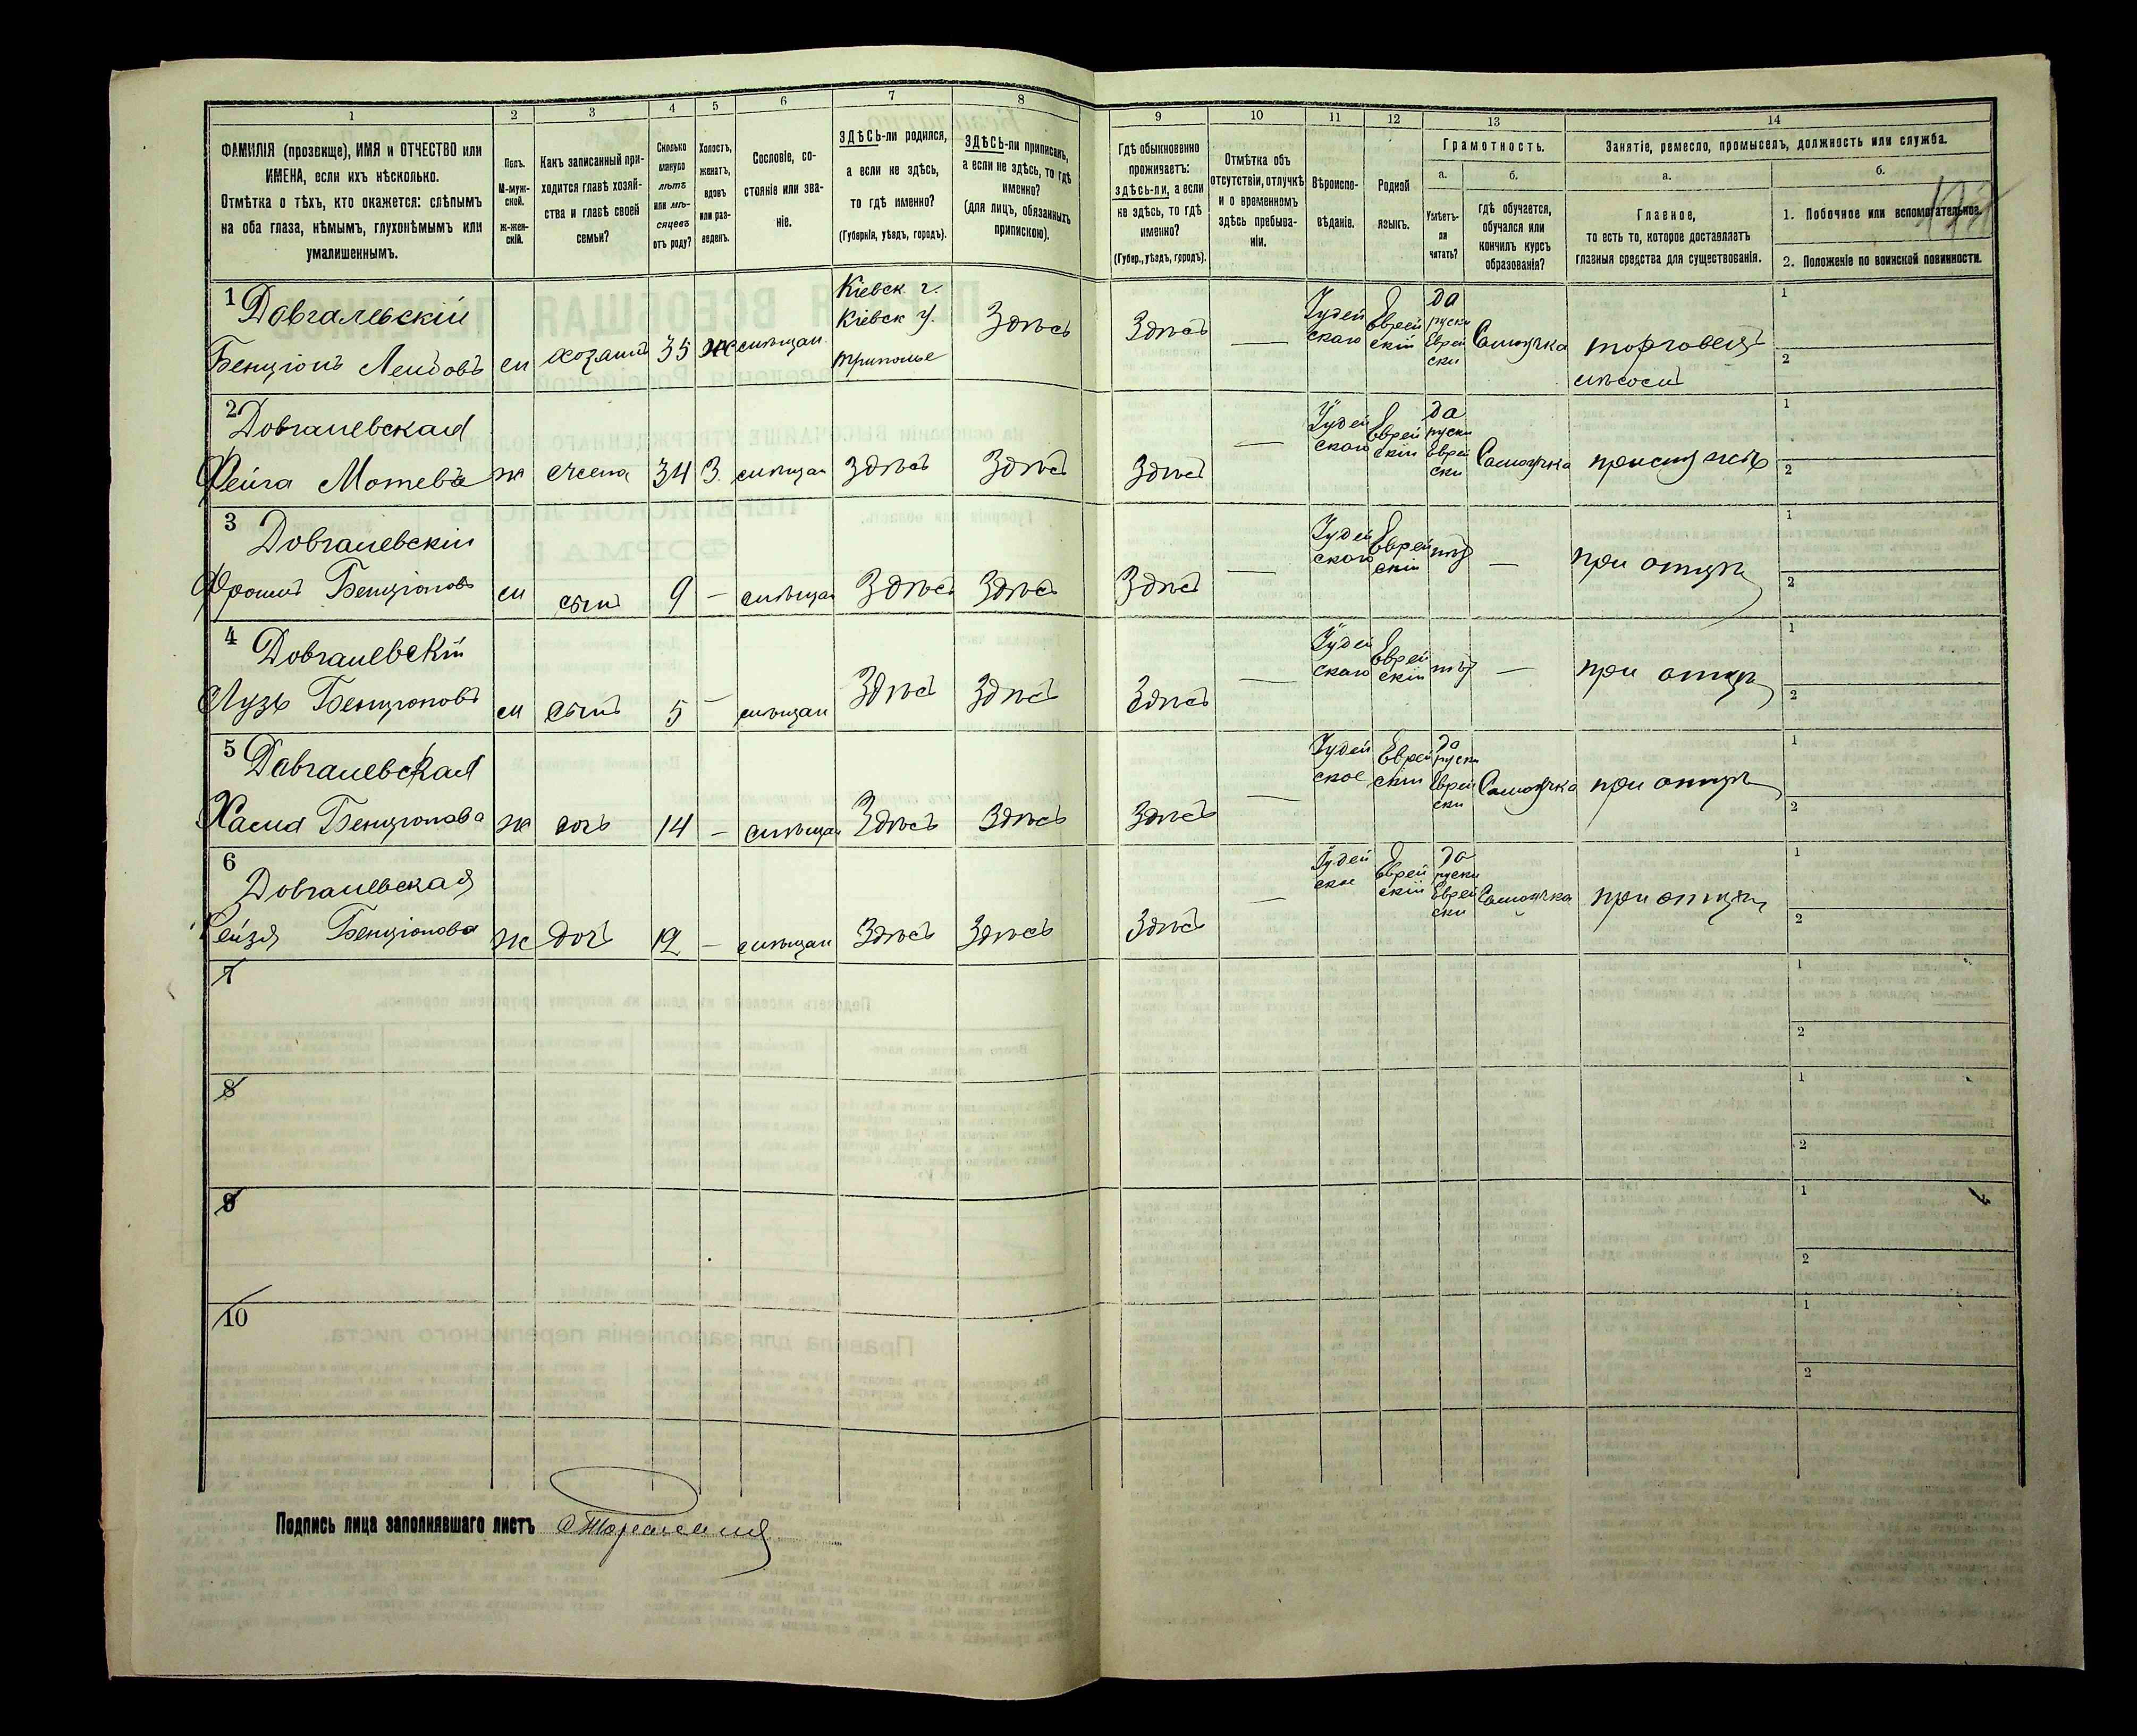 1
2
3
4
5
6
7
8
9
10
11
12
13
14
ФАМИЛІЯ (прозвище), ИМЯ и ОТЧЕСТВО или
ИМЕНА, если ихъ нѣсколько.
Отмѣтка о тѣхъ, кто окажется: слѣпымъ
на оба глаза, нѣмымъ, глухонѣмымъ или
умалишеннымъ.
Полъ.
М-муж-
ской.
ж-жен-
скій.
Какъ записанный при-
ходится главѣ хозяй-
ства и главѣ своей
семьи?
Сколько
минуло
лѣтъ
или мѣ-
сяцевъ
отъ роду?
Холостъ,
женатъ,
вдовъ
или раз-
веденъ.
Сословіе, со-
стояніе или зва-
ніе.
ЗДѢСЬ-ли родился,
а если не здѣсь,
то гдѣ именно?
(Губернія, уѣздъ, городъ).
ЗДѢСЬ-ли приписанъ,
а если не здѣсь, то гдѣ
именно?
(для лицъ, обязанныхъ
припискою).
Гдѣ обыкновенно
проживаетъ:
здѣсь-ли, а если
не здѣсь, то гдѣ
именно?
(Губер., уѣздъ, городъ).
Отмѣтка объ
отсутствіи, отлучкѣ
и о временномъ
здѣсь пребыва-
ніи.
Вѣроиспо-
вѣданіе.
Родной
языкъ.
Грамотность.
а.
Умѣетъ-
ли
читать?
б.
гдѣ обучается,
обучался или
кончилъ курсъ
образованія?
Занятіе, ремесло, промыселъ, должность или служба.
а.
Главное,
то есть то, которое доставляетъ
главныя средства для существованія.
б.
1. Побочное или вспомогательное.
2. Положеніе по воинской повинности.
1 Довгалевскій
Бенціонъ Лейбовъ м хозяинъ 35 ж мѣщан. Кіевск г.
Кіевск у.
Триполье Здѣсь Здѣсь — Іудей
скаго Еврей
скій да
руски
Еврей
ски Самоучка торговецъ
мясомъ 1
2
2 Довгалевская
Фейга Мотева ж жена 34 З. мѣщан Здѣсь Здѣсь Здѣсь — Іудей
скаго Еврей
скій да
руски
Еврей
ски Самоучка при мужѣ 1
2
3 Довгалевскій
Фроимъ Бенціоновъ м сынъ 9 — мѣщан Здѣсь Здѣсь Здѣсь — Іудей
скаго Еврей
скій нѣт — при отцѣ 1
2
4 Довгалевскій
Лузъ Бенціоновъ м сынъ 5 — мѣщан Здѣсь Здѣсь Здѣсь — Іудей
скаго Еврей
скій нѣт — при отцѣ 1
2
5 Давгалевская
Хасиа Бенціонова ж дочъ 14 — мѣщан Здѣсь Здѣсь Здѣсь — Іудей
ское Еврей
скій да
руски
Еврей
ски Самоучка при отцѣ 1
2
6 Довгалевская
Рейзя Бенціонова ж дочъ 12 — мѣщан Здѣсь Здѣсь Здѣсь — Іудей
ское Еврей
скій да
руски
Еврей
ски Самоучка при отцѣ 1
2
7 1
2
8 1
2
9 1
2
10 1
2
Подпись лица заполнявшаго листъ